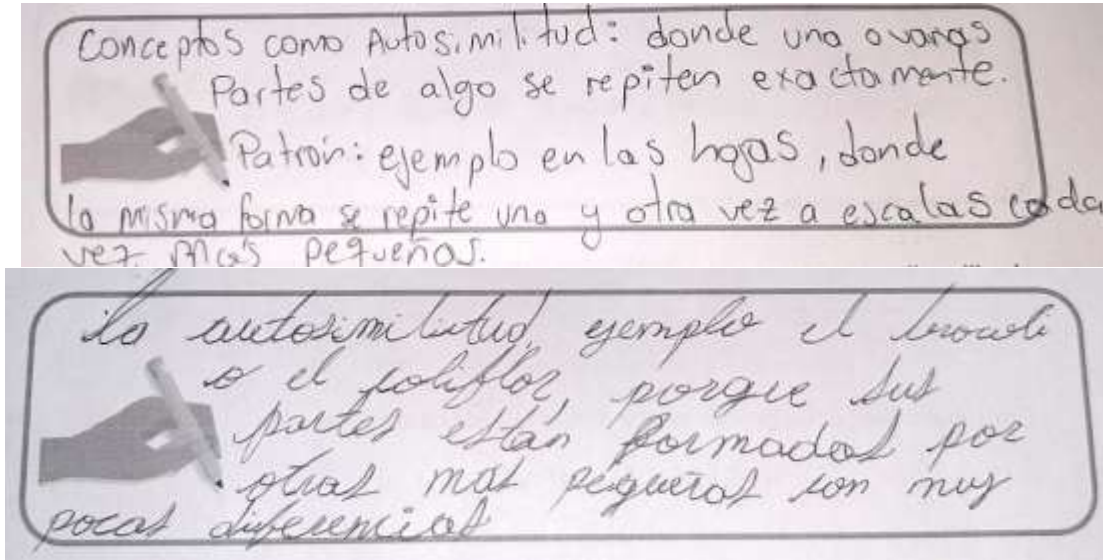 Conceptos como Autosimilitud: donde una o varias
Partes de algo se repiten exactamente.
Patrón: ejemplo en las hojas, donde
la misma forma se repite una y otra vez a escalas cada
vez más pequeñas.
la autosimilitud, ejemplo el brocoli
o el coliflor, porque sus
partes están formadas por
otras mas pequeñas con muy
pocas diferencias